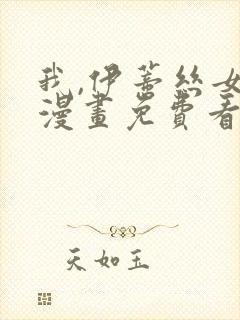 我,伊蒂絲女
漫畫免費看
天如玉